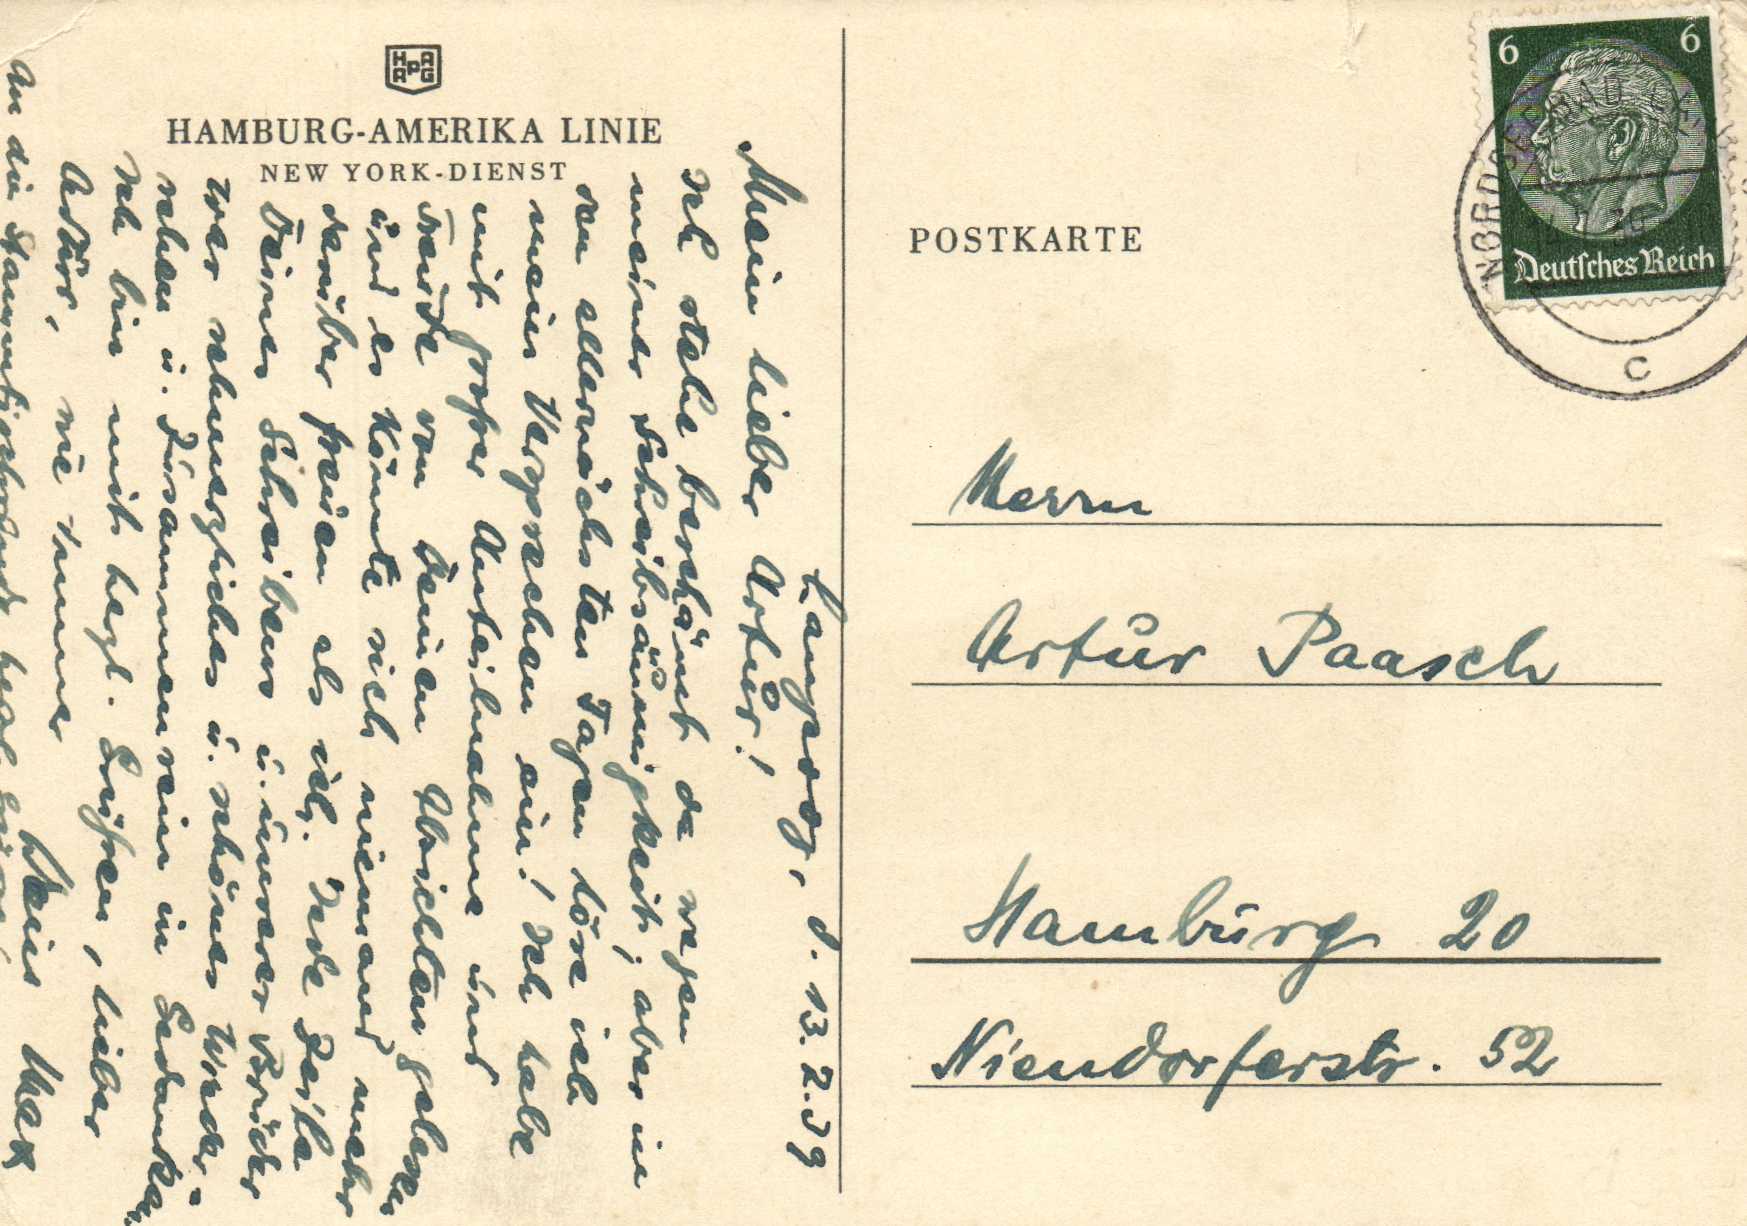 HAPAG
HAMBURG-AMERIKA LINIE
NEW YORK-DIENST
Langeoog, d. 13. 2. 39
Mein lieber Artur!
Ich stehe beschämt da wegen
meiner Schreibsäumigkeit, aber in
den allernächsten Tagen löse ich
mein Versprechen ein! Ich habe
mit großer Anteilnahme und
Freude von Deinen Absichten gelesen
und es könnte sich niemand mehr
darüber freuen als ich. Jede Zeile
Deines Schreibens u. unserer Brüder
war schmerzliches u. schönes Wieder-
sehen u. Zusammensein in Gedanken.
Ich bin mit herzl. Grüßen, lieber
Artur, wie immer
Dein Max
An die Stammtischrunde herzl. Grüße!
POSTKARTE
6 6
Deutsches Reich
NORDSEEBAD
39
c
Herrn
Artur Paasch
Hamburg 20
Niendorferstr. 52